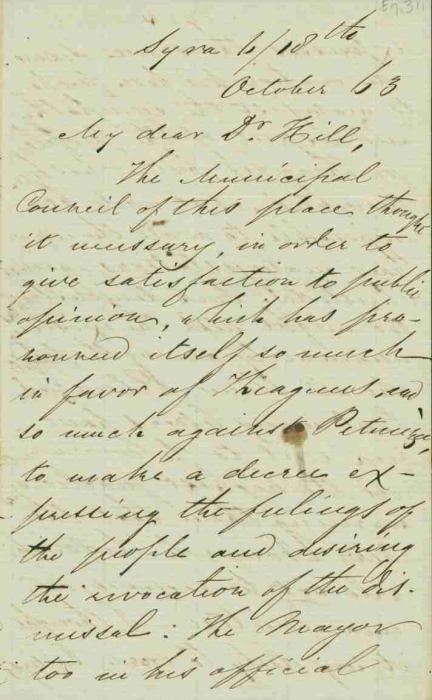 Syra 6/18th
October 63
My dear Dr. Hill,
The Municipal
Council of this place thought
it necessary, in order to
give satisfaction to public
opinion, which has pro-
nounced itself so much
in favor of and
so much against
to make a decree ex-
pressing the feelings of
the people and desiring
the revocation of the dis-
missal: The Mayor
too in his official